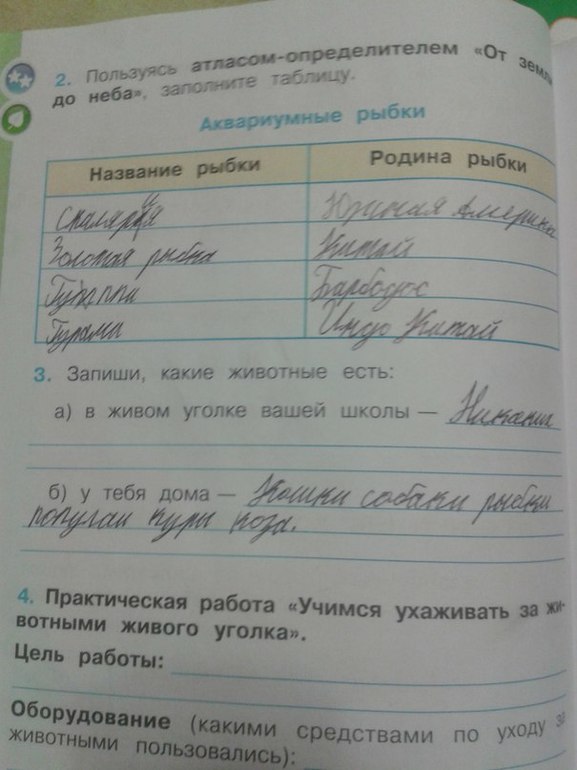 2. Пользуясь атласом-определителем «От земли
до неба», заполните таблицу.
Аквариумные рыбки
Название рыбки Родина рыбки
Скалярия Южная Америка
Золотая рыбка Китай
Гуппи Барбодос
Гурами Индо Китай
3. Запиши, какие животные есть:
а) в живом уголке вашей школы — Никаких
б) у тебя дома — Кошки собаки рыбки
попугаи куры коза.
4. Практическая работа «Учимся ухаживать за жи-
вотными живого уголка».
Цель работы:
Оборудование (какими средствами по уходу за
животными пользовались):